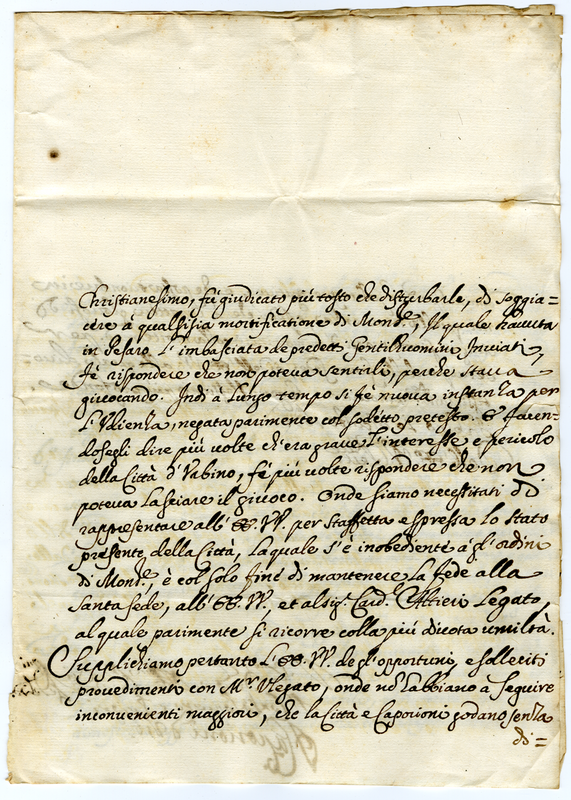 Christianesimo, fú giudicato piú tosto che disturbarle, di soggia=
cere á qualsisia mortificatione di Mons.re, Il quale havuta
in Pesaro l'imbasciata de predetti Gentilhuomini Inviati,
fé rispondere che non poteva sentirli, perche stava
giuocando. Indi á lungo tempo si fé nuova instanza per
l'Udienza, negata parimente col sodetto pretesto. Et facen=
dosegli dire piú volte ch'era grave l'interesse e pericolo
della Cittá d'Urbino, fé piú volte rispondere che non
poteva lasciare il giuoco. Onde siamo necessitati di
rappresentare all'EE. VV. per staffetta espressa lo stato
presente della Cittá, la quale s'é inobediente á gl'ordini
di Mons.re, é col solo fine di mantenere la fede alla
Santa Sede, all'EE. VV., et al sig.r Card. Altieri Legato,
al quale parimente si ricorre colla piú divota umiltá.
Supplichiamo pertanto l'EE. VV. de gl'opportuni, e solleciti
provedimenti con M.r Vlegato, onde nõ habbiano á seguire
inconvenienti maggiori, che la Cittá e Caporioni godano senza
di=